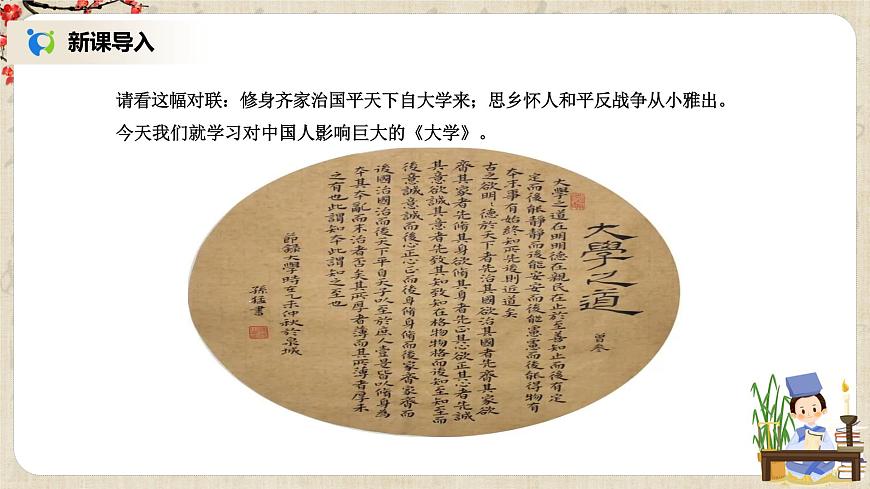 新课导入
请看这幅对联：修身齐家治国平天下自大学来；思乡怀人和平反战争从小雅出。
今天我们就学习对中国人影响巨大的《大学》。
大學之道
曾參
大學之道在明明德在親民在止於至善知止而後有定
定而後能靜靜而後能安安而後能慮慮而後能得物有
本末事有始終知所先後則近道矣
古之欲明〻德於天下者先治其國欲治其國者先齊其家欲
齊其家者先脩其身欲脩其身者先正其心欲正其心者先誠
其意欲誠其意者先致其知致知在格物物格而後知至知至而
後意誠意誠而後心正心正而後身脩身脩而後家齊家齊而
後國治國治而後天下平自天子以至於庶人壹是皆以脩身為
本其本亂而末治者否矣其所厚者薄而其所薄者厚未
之有也此謂知本此謂知之至也
節錄大學時在乙未仲秋於泉城
孫猛書